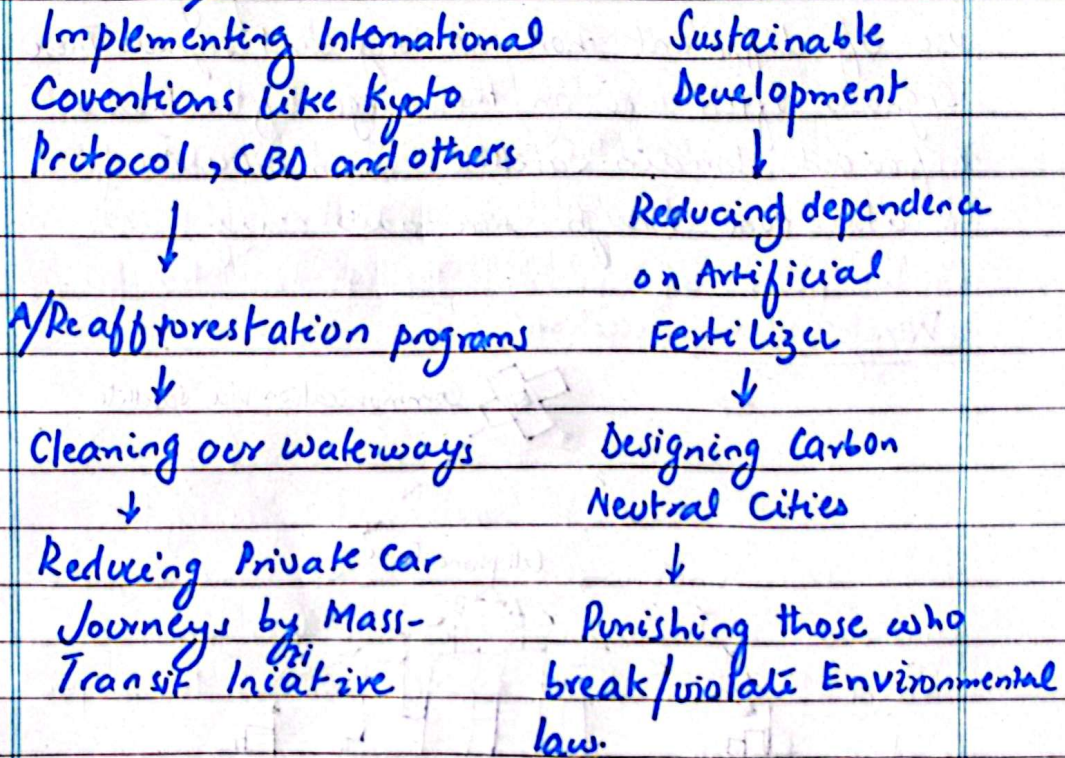 Implementing International
Coventions like Kyoto
Protocol, CBD and others
↓
A/Reafforestation programs
↓
Cleaning our waterways
↓
Reducing Private Car
Journeys by Mass-
Transit Iniative
ti
Sustainable
Development
↓
Reducing dependence
on Artificial
Fertilizer
↓
Designing Carbon
Neutral Cities
↓
Punishing those who
break/violate Environmental
law.